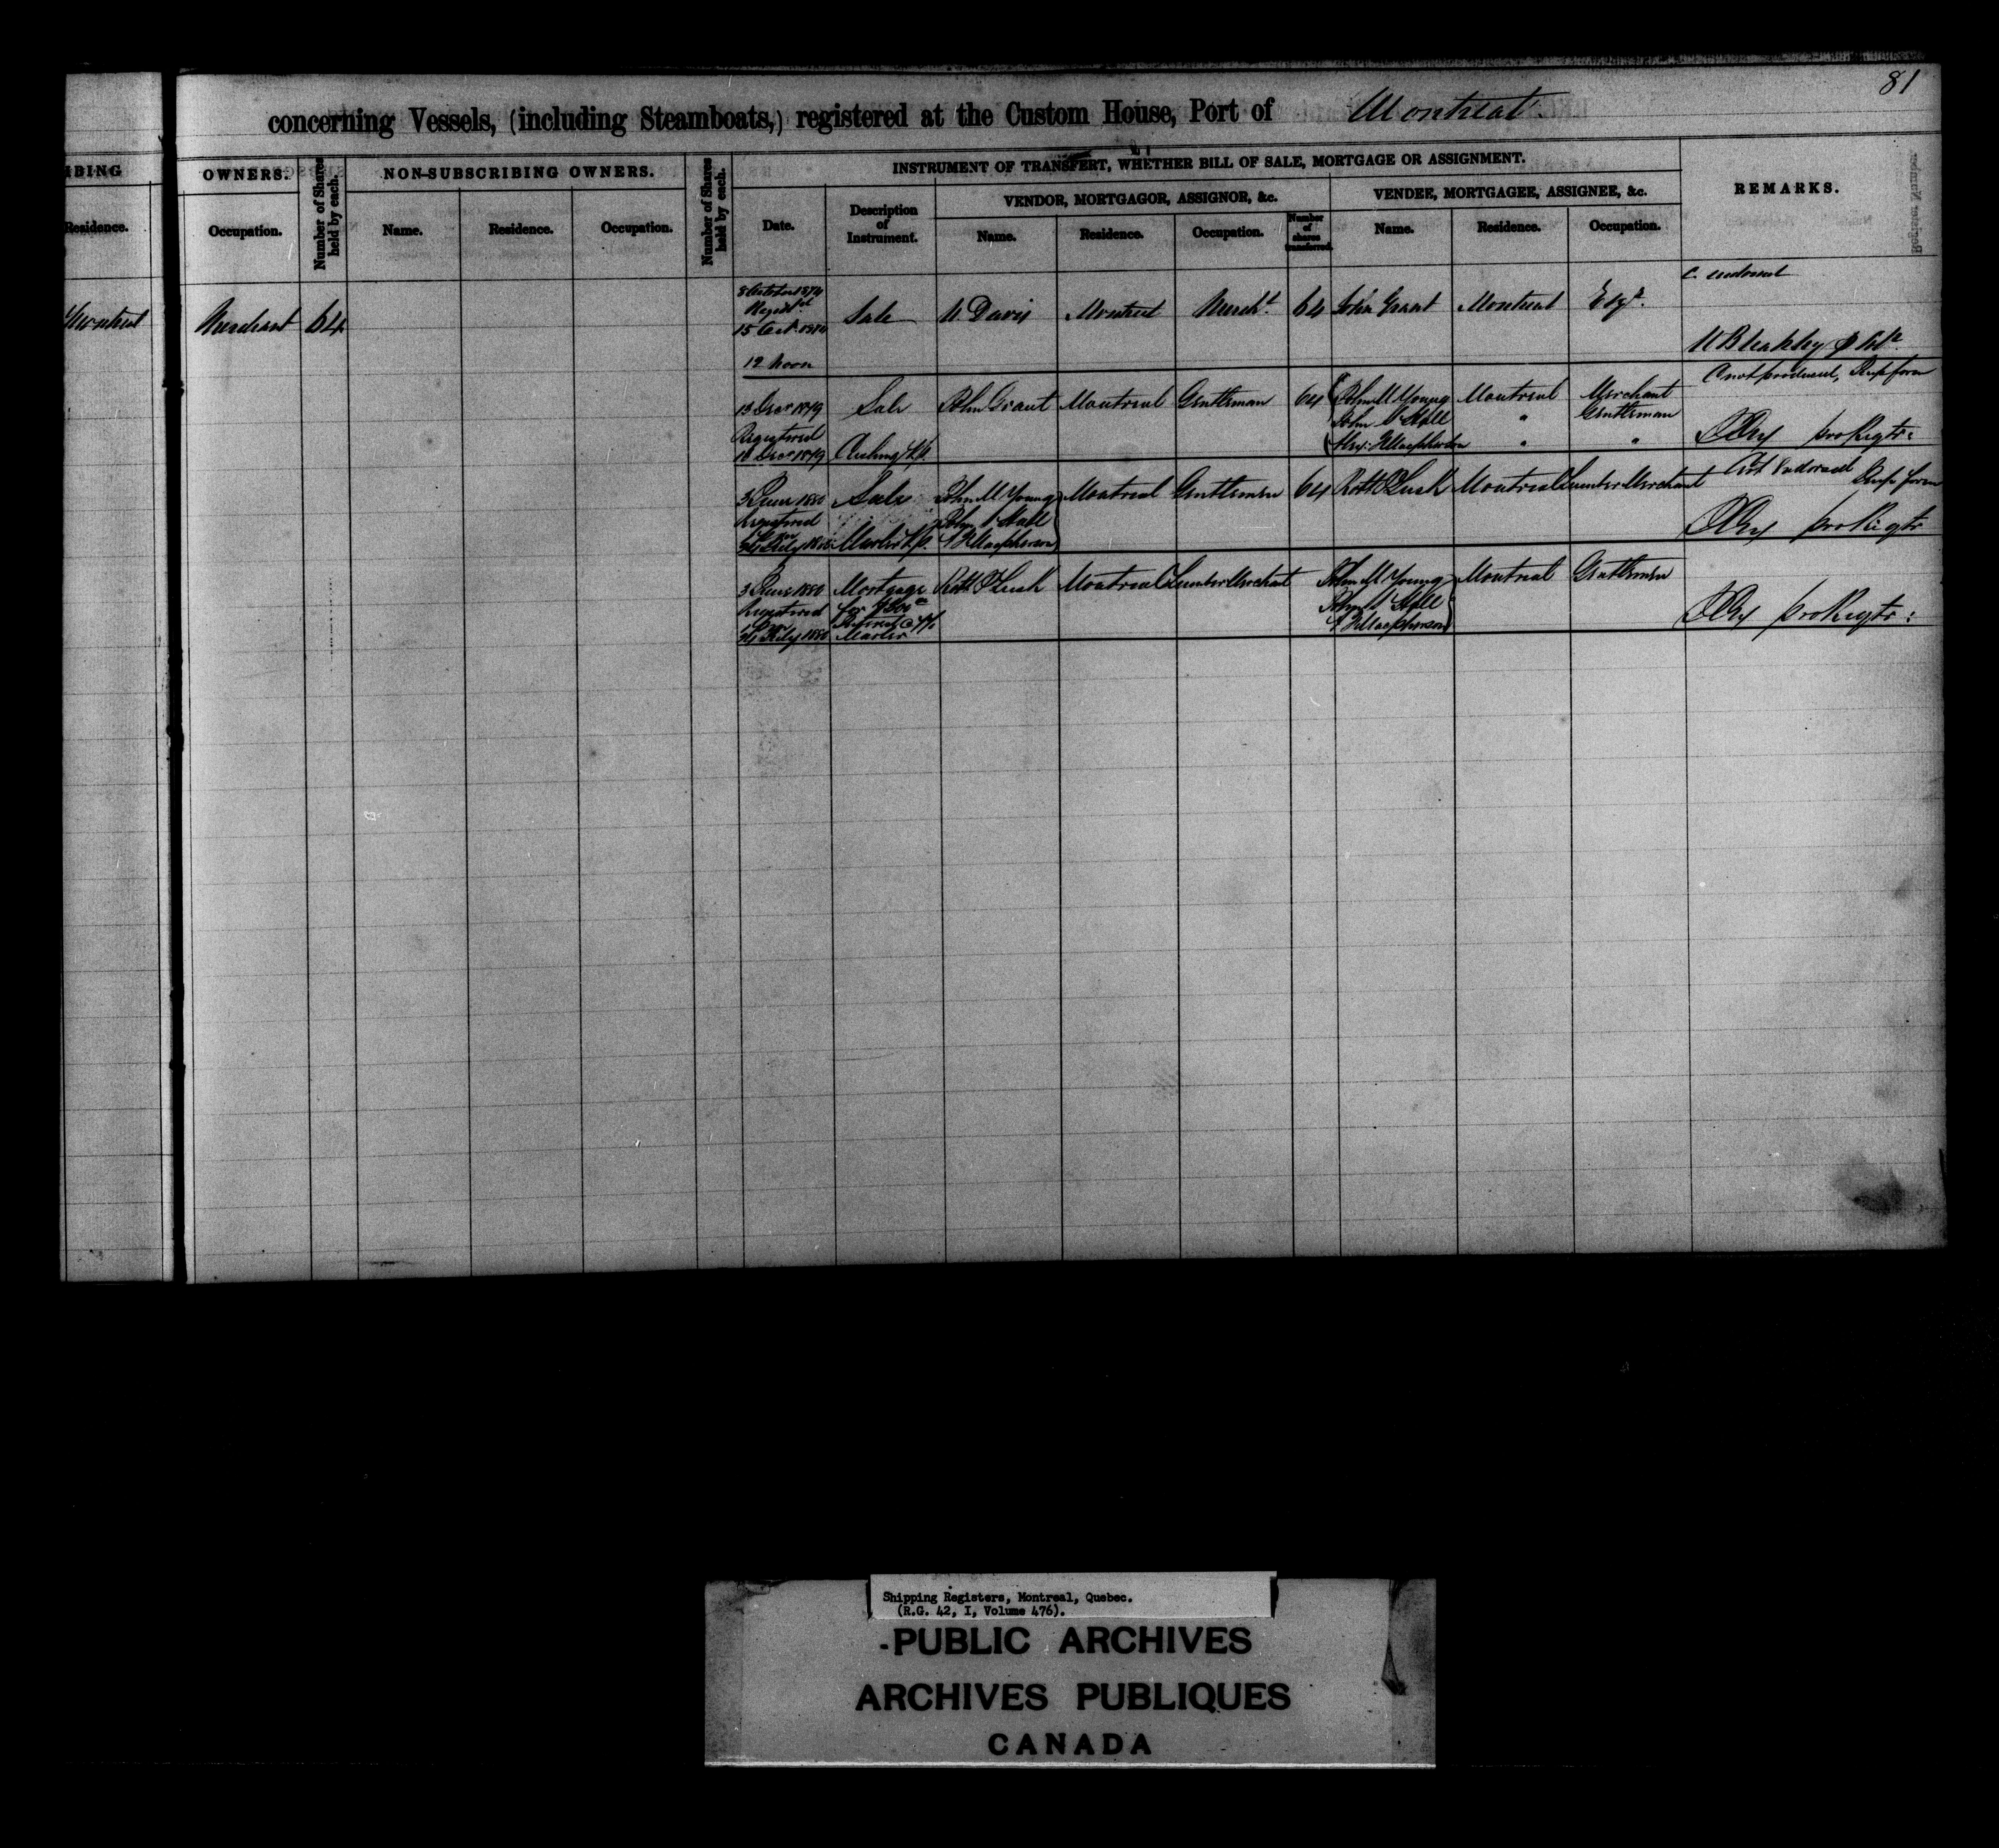 81
concerning Vessels, (including Steamboats,) registered at the Custom House, Port of Montreal
IBING
OWNERS.
Number of Shares held by each.
NON-SUBSCRIBING OWNERS.
Number of Shares held by each.
INSTRUMENT OF TRANSFERT, WHETHER BILL OF SALE, MORTGAGE OR ASSIGNMENT.
REMARKS.
VENDOR, MORTGAGOR, ASSIGNOR, &c.
VENDEE, MORTGAGEE, ASSIGNEE, &c.
Residence.
Occupation.
Name.
Residence.
Occupation.
Date.
Description of Instrument.
Name.
Residence.
Occupation.
Number of shares transferred.
Name.
Residence.
Occupation.
Register Number.
C. endorsed
Montreal Merchant 64
8 October 1874
Regist
15 Oct. 1874
12 Noon
Sale
Davis Montreal Mercht. 64 John Grant Montreal Esqr.
13 Decr 1879 Sale John Grant Montreal Gentleman 64 John M Young Montreal Merchant
C not produced,
John Hall " Gentleman
Registered
Decr 1879 Cushing N.P.
Macpherson " "
pro Regtr:
3 June 1880 Sale John M Young Montreal Gentlemen 64 Robt Lusk Montreal Lumber Merchant
Endorsed
Registered John Hall
July 1880 Marler N.P. Macpherson
pro Regtr
3 June 1880 Mortgage Robt Lusk Montreal Lumber Merchant John M Young Montreal Gentlemen
Registered for
John Hall
Interest @
July 1880 Marler
Macpherson
pro Regtr:
Shipping Registers, Montreal, Quebec.
(R.G. 42, I, Volume 476).
-PUBLIC ARCHIVES
ARCHIVES PUBLIQUES
CANADA